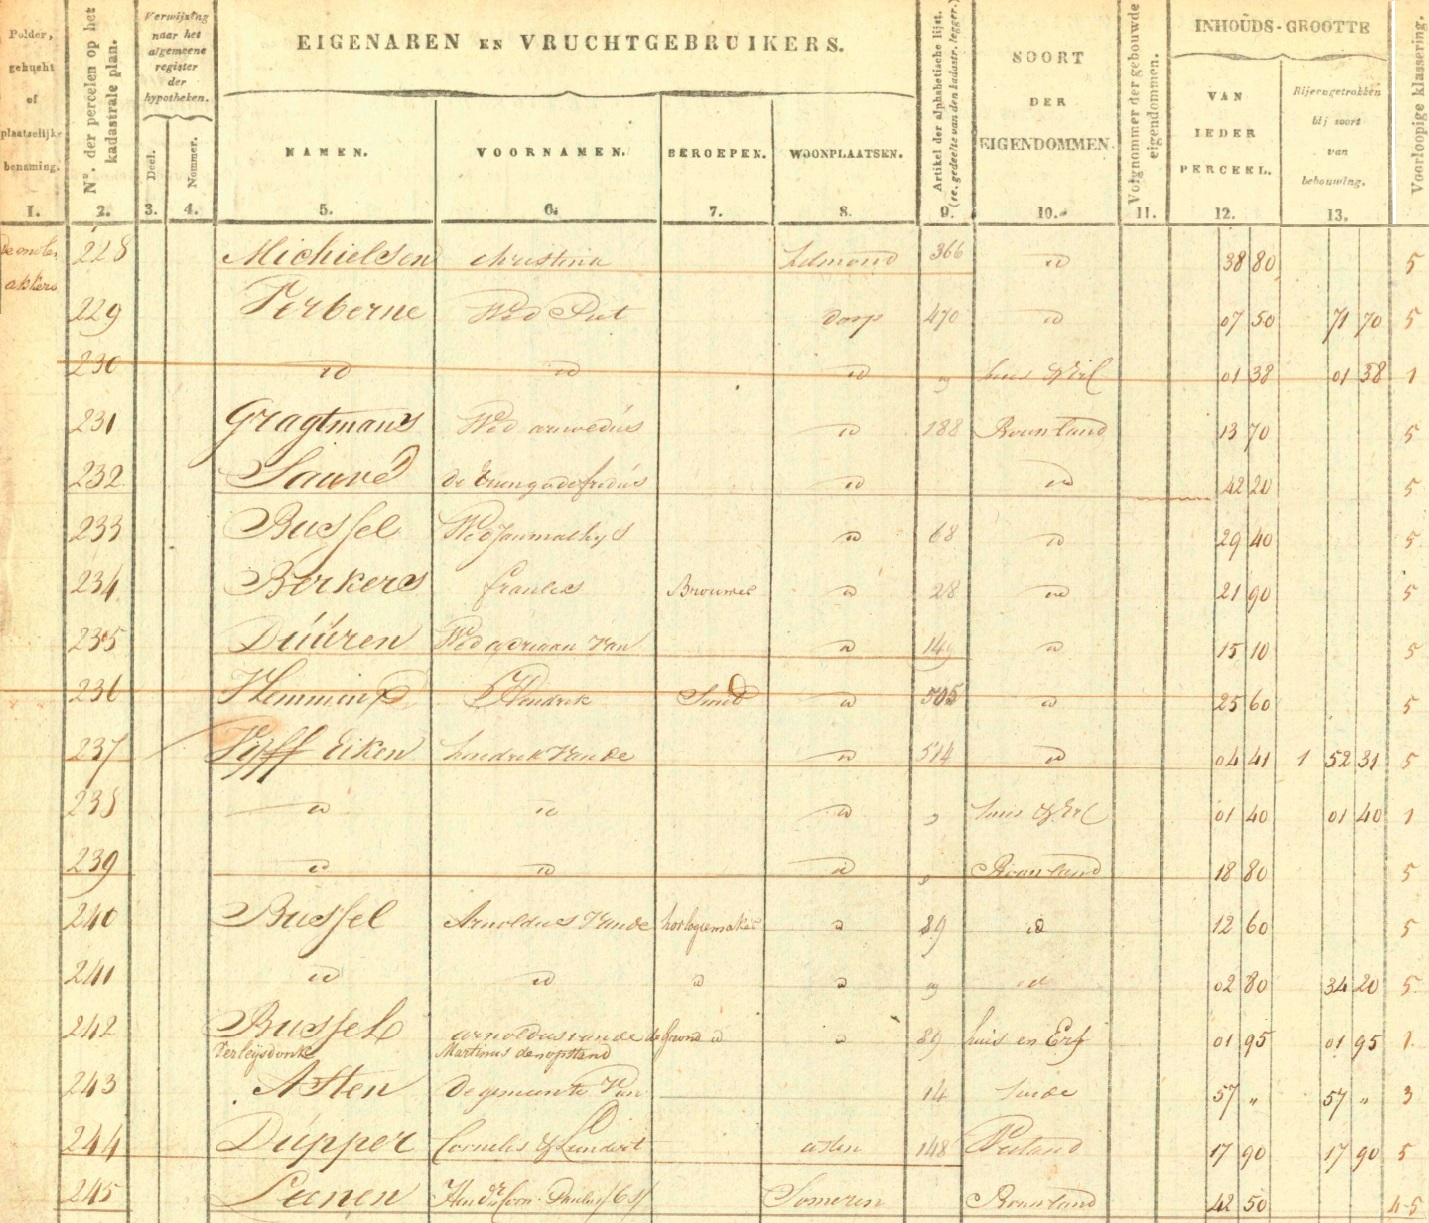 Polder, gehucht of plaatselijke benaming.
No. der percelen op het kadastrale plan.
Verwijzing naar het algemeene register der hypotheken.
Deel.
Nommer.
EIGENAREN EN VRUCHTGEBRUIKERS.
NAMEN.
VOORNAMEN.
BEROEPEN.
WOONPLAATSEN.
Artikel der alphabetische lijst.
SOORT DER EIGENDOMMEN.
Volgnommer der gebouwde eigendommen.
INHOUDS-GROOTTE
VAN IEDER PERCEEL.
Bijeengetrokken bij soort van bebouwing.
Voorloopige klassering.
1. 2. 3. 4. 5. 6. 7. 8. 9. 10. 11. 12. 13.
228 Michielsen Christina Helmond 366 id 38 80 5
akkers
229 Verberne Wed Piet dorp 470 id 07 50 71 70 5
230 id id id " huis & Erf 01 38 01 38 1
231 Gragtmans Wed id 188 Bouwland 13 70 5
232 Sauvé de id id 42 20 5
233 Bussel Wed Jan mathys id 68 id 29 40 5
234 Berkers francis Brouwer id 28 id 21 90 5
235 Duuren Wed adriaan Van id 149 id 15 10 5
236 Hendrik Smid id 505 id 25 60 5
237 Vijff Eiken hendrik Van de id 514 id 04 41 1 52 31 5
238 id id id " huis & Erf 01 40 01 40 1
239 id id id " Bouwland 18 80 5
240 Bussel Arnoldus Van de horlogiemaker id 89 id 12 60 5
241 id id id id " id 02 80 34 20 5
242 Bussel arnoldus van de de Grond id id 89 huis en Erf 01 95 01 95 1
Verleijsdonk Martinus den opstand
243 Asten De gemeente Van 14 57 " 57 " 3
244 Dupper Cornelis & Lindert asten 148 17 90 17 90 5
245 Leenen Someren Bouwland 42 50 4-5